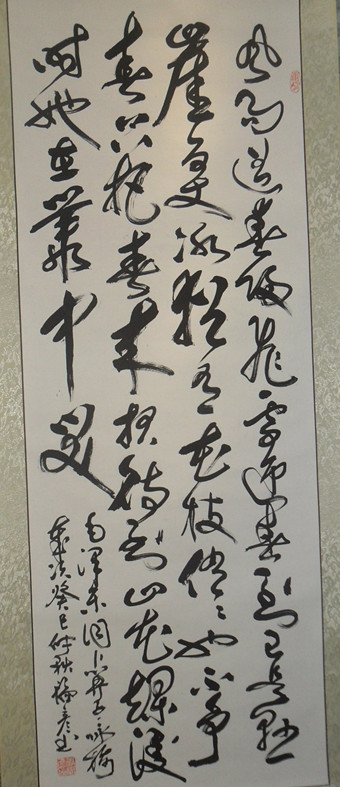 风雨送春归飞雪迎春到已是悬
崖百丈冰犹有花枝俏俏也不争
春只把春来报待到山花烂漫
时她在叢中笑
毛泽东词卜算子咏梅
岁次癸巳仲秋